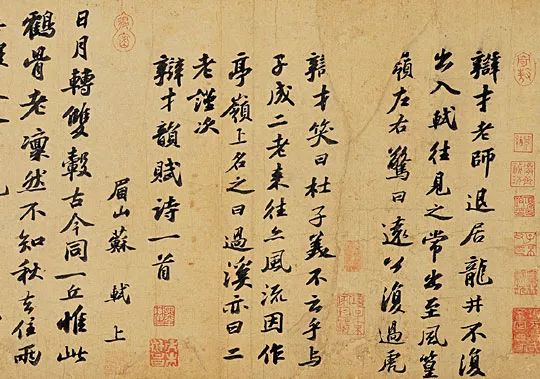 辯才老師退居龍井不復
出入軾往見之常出至風篁
嶺左右驚曰遠公復過虎
辯才笑曰杜子美不云乎與
子成二老來往亦風流因作
亭嶺上名之曰過溪亦曰二
老謹次
辯才韻賦詩一首
眉山蘇軾上
日月轉雙轂古今同一丘惟此
鶴骨老凜然不知秋去住兩